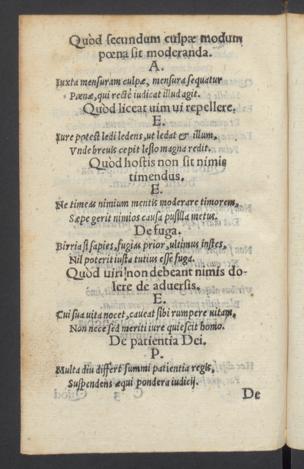 Quòd secundum culpæ modum
pœna sit moderanda.
A.
Iuxta mensuram culpæ, mensura sequatur
Pœnæ, qui rectè iudicat illud agit.
Quòd liceat uim ui repellere.
E.
Iure potest lædi ledens, ut ledat & illum,
Vnde breuis cepit lesio magna redit.
Quòd hostis non sit nimis
timendus.
E.
Ne timeas nimium mentis moderare timorem,
Sæpe gerit nimios causa pusilla metus.
De fuga.
Birria si sapies, fugias prior, ultimus instes,
Nil poterit iusta tutius esse fuga.
Quòd uiri non debeant nimis do-
lere de aduersis.
E.
Cui sua uita nocet, caueat sibi rumpere uitam,
Non nece sed meriti iure quiescit homo.
De patientia Dei.
P.
Multa diu differt summi patientia regis,
Suspendens æqui pondera iudicij.
De